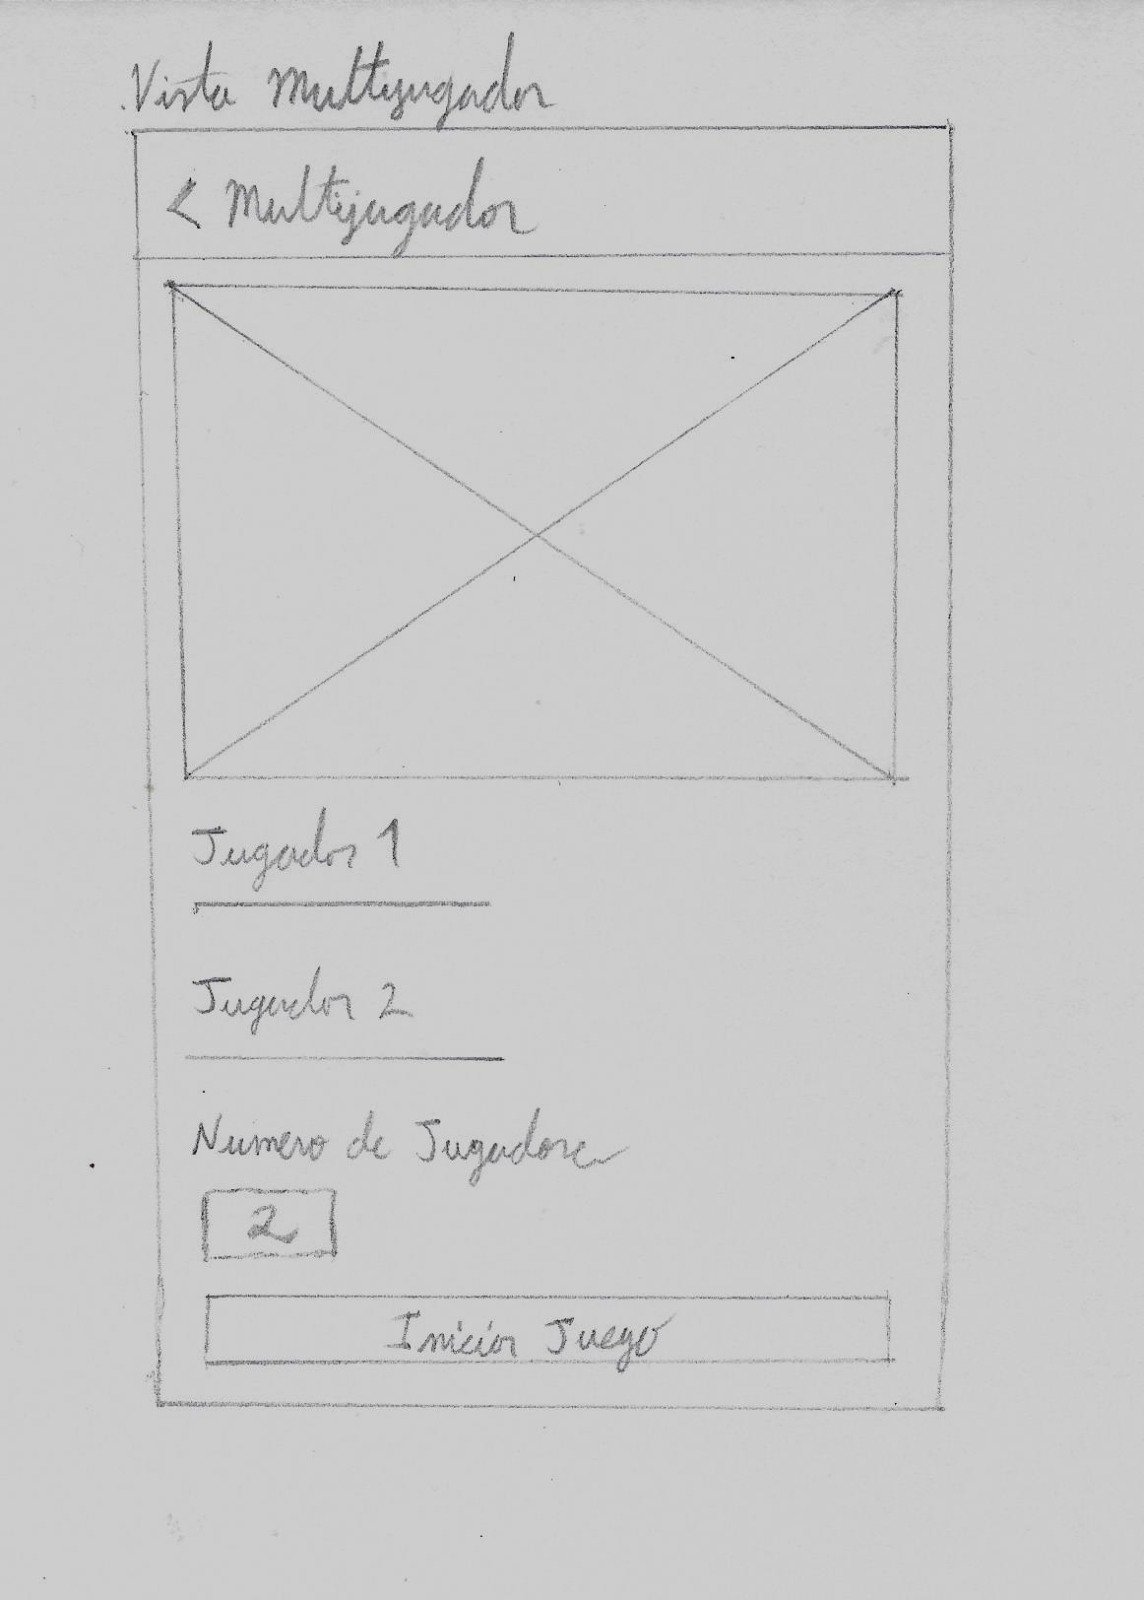 Vista Multijugador
< Multijugador
Jugador 1
Jugador 2
Numero de Jugadores
2
Iniciar Juego